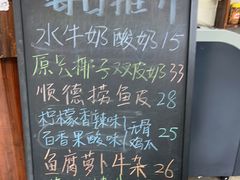 每日推介
水牛奶酸奶15
原只椰子双皮奶33
顺德捞鱼皮28
柠檬香辣味
百香果酸味
无骨鸡爪25
鱼腐萝卜牛杂26